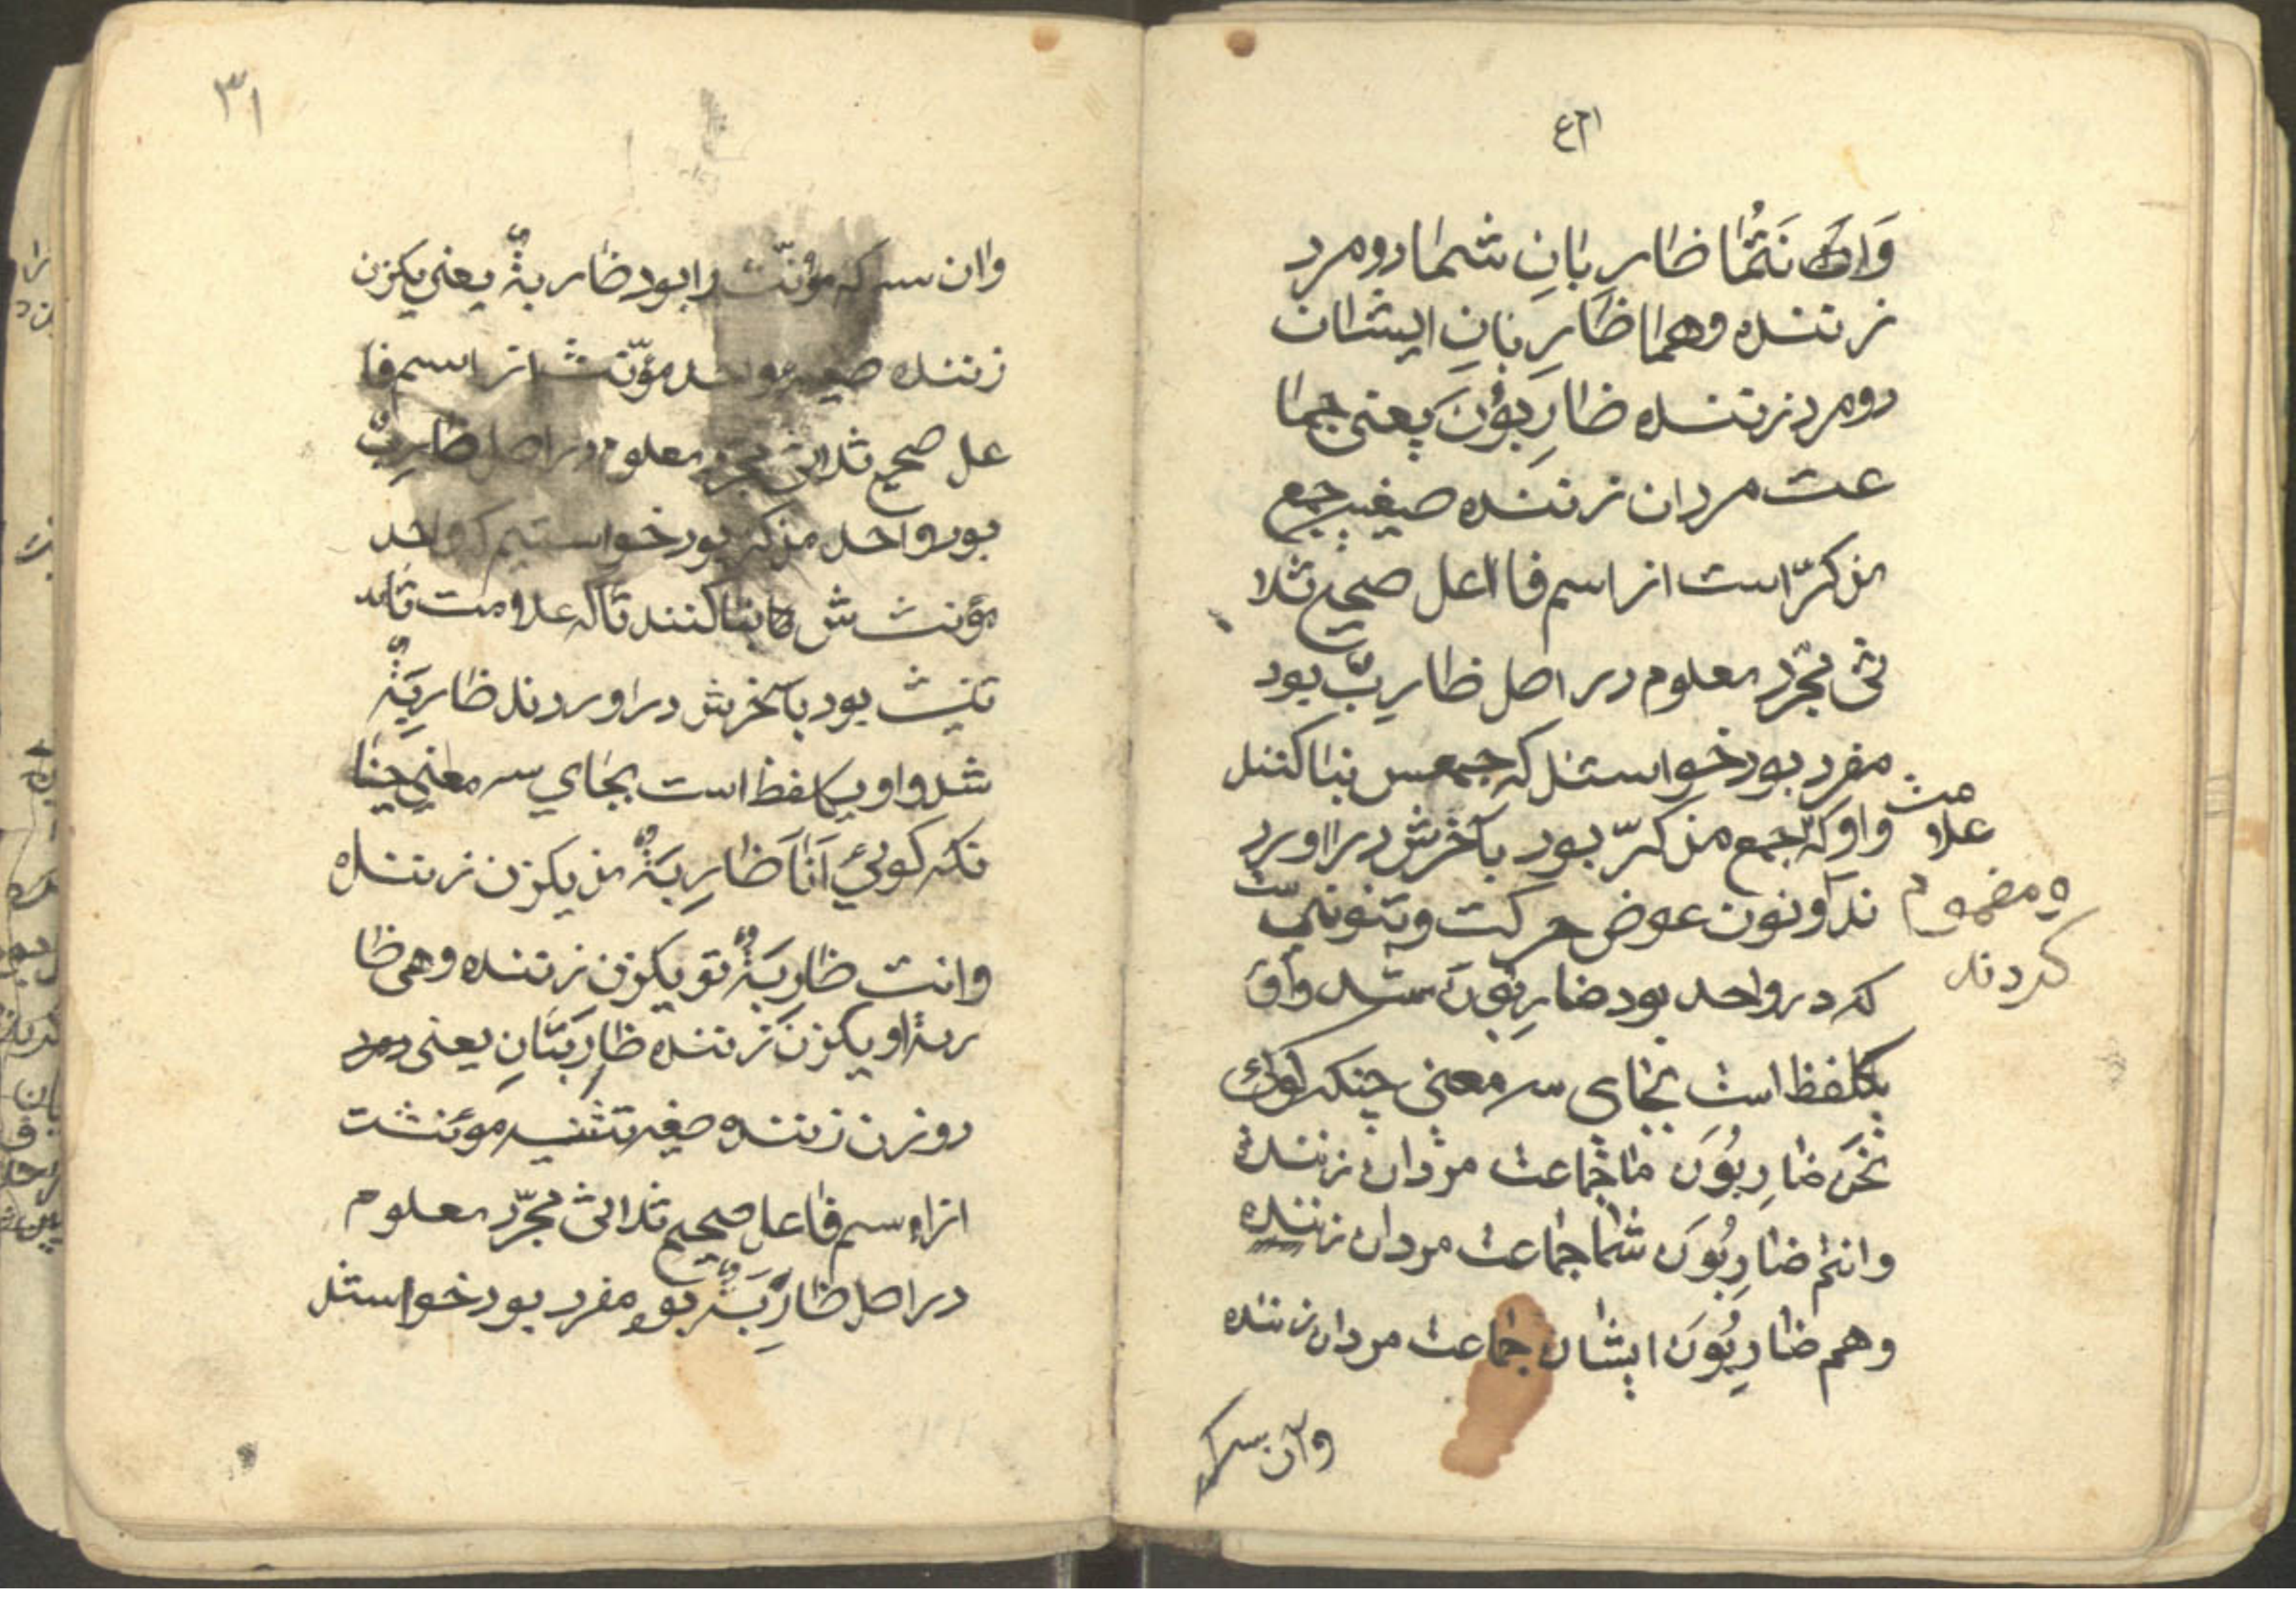 ۲۱ع
وَانَتُمٰا ظاربانِ شما دو مرد
زننده وهما ظارِبٰانِ ایشان
دو مرد زننده ظارِبُونَ یعنی جما
عت مردان زننده صیغه جمع
مذکرّ است از اسم فااعل صحیح ثلا
ثی مجرّد معلوم در اصل ظاربٌ بود
مفرد بود خواستند که جمعس بنا کنند
علامت واو که جمع مذکرّ بود بآخرش دراورد
ومضموم کردند
ند ونون عوض حرکت وتنونی ست
که در واحد بود ضارِبُونَ شد واو
یکلفظ است بجای سه معنی چنکه کوئی
نحن ضارِبُونَ ما جماعت مردان زننده
وانتم ضارِبُونَ شما جماعت مردان زننده
وهم ضارِبُونَ ایشان جماعت مردان زننده
وآن سه که
۳۱
وان سه که مؤنّث را بود ضاربةٌ یعنی یکزن
زننده صیغه واحد مؤنّث از اسم فا
عل صحیح ثلاثی مجرّد معلوم در اصل ظاربٌ
بود واحد مذکر بود خواستیم که واحد
مؤنث ش بنا کنند تا که علامت تا
نیث بود بآخرش دراوردند ظاربَةٌ
شد واو یکلفظ است بجای سه معنی چنا
نکه کوئی اَنَا ظارِبَةٌ من یکزن زننده
وانت ظارِبَةٌ تو یکزن زننده وهی ظا
ربة او یکزن زننده ظارِبَتٰانِ یعنی
دو زن زننده صیغه تثنیه موئنث
از اسم فاعل صحیح ثلاثی مجرّد معلوم
در اصل ظارِبَةٌ بود مفرد بود خواستند